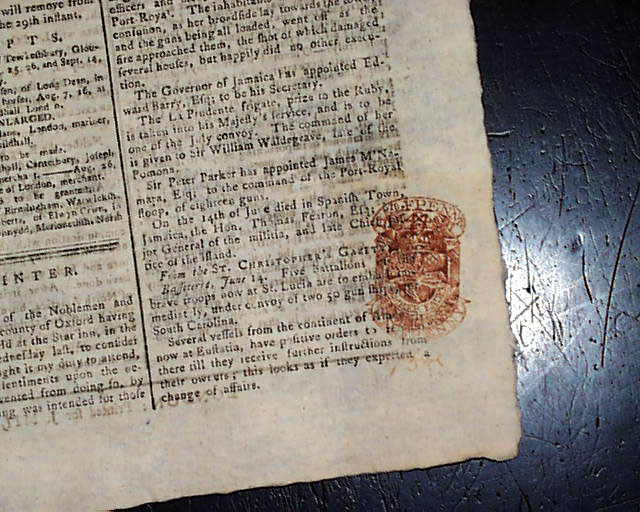 will remove from
the 29th instant.
P T S.
Tewkesbury, Glou-
25, 26, and Sept. 14,
of Long Dean, in
horses, Aug. 7, 16, at
Guildhall London.
ENLARGED.
London, mariner,
Guildhall.
to be made.
Canterbury, Joseph
Aug. 26.
of London,
to be granted.
Birmingham, Warwicksh.
of Eleyn Crwn,
Merionethsh. North
INTER.
of the Noblemen and
county of Oxford having
held at the Star inn, in the
Wednesday last, to consider
it my duty to attend,
sentiments upon the oc-
prevented from going in, by
was intended for those
officers and
Port-Royal. The inhabitants
confusion, as her broadside lay towards the town
and the guns being all loaded, went off as the
fire approached them, the shot of which damaged
several houses, but happily did no other execu-
tion.
The Governor of Jamaica has appointed Ed-
ward Barry, Esq; to be his Secretary.
The La Prudente frigate, prize to the Ruby,
is taken into his Majesty's service, and is to be
one of the July convoy. The command of her
is given to Sir William Waldegrave, late of the
Pomona.
Sir Peter Parker has appointed James M'Na-
mara, Esq; to the command of the Port-Royal
sloop, of eighteen guns.
On the 14th of June died in Spanish Town,
Jamaica, the Hon. Thomas Fearon, Esq; Ma-
jor General of the militia, and late Chief Jus-
tice of the island.
From the ST. CHRISTOPHER'S GAZETTE.
Basseterre, June 14. Five battalions of the
brave troops now at St. Lucia are to embark im-
mediately, under convoy of two 50 gun ships, for
South Carolina.
Several vessels from the continent of America
now at Eustatia, have positive orders to lie
there till they receive further instructions from
their owners; this looks as if they expected a
change of affairs.